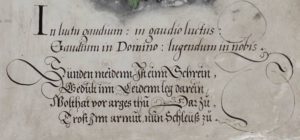 In luctu gaudium: in gaudio luctus:
Gaudium in Domino: lugendum in nobis.
Sünden meiden Ist ein Schrein,
Gedult im Leiden leg darein
Wolthat vor arges thu Dar zu
Trost in armut nun Schleuß zu